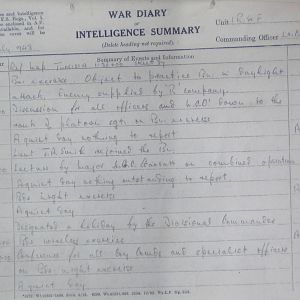 WAR DIARY
or
INTELLIGENCE SUMMARY
(Delete heading not required).
Unit
Commanding Officer
and Intelligence
Regs., Vol.
enclosed in A.F.
available, and for
cover will be
Summary of Events and Information
Ref Map Tunisia
Bn exercise. Object to practice Bn in daylight
attack. Enemy supplied by R company.
Discussion for all officers and W.O's down to the
rank of platoon sgts on Bn. exercise
A quiet day nothing to report
rejoined the Bn.
Lecture by Major on combined operations
A quiet day nothing outstanding to report.
Bn night exercise
A quiet day
Designated a holiday by the Divisional Commander
Bn wireless exercise
Conference for all Coy Comds and specialist officers
on Bn. night exercise
A quiet day